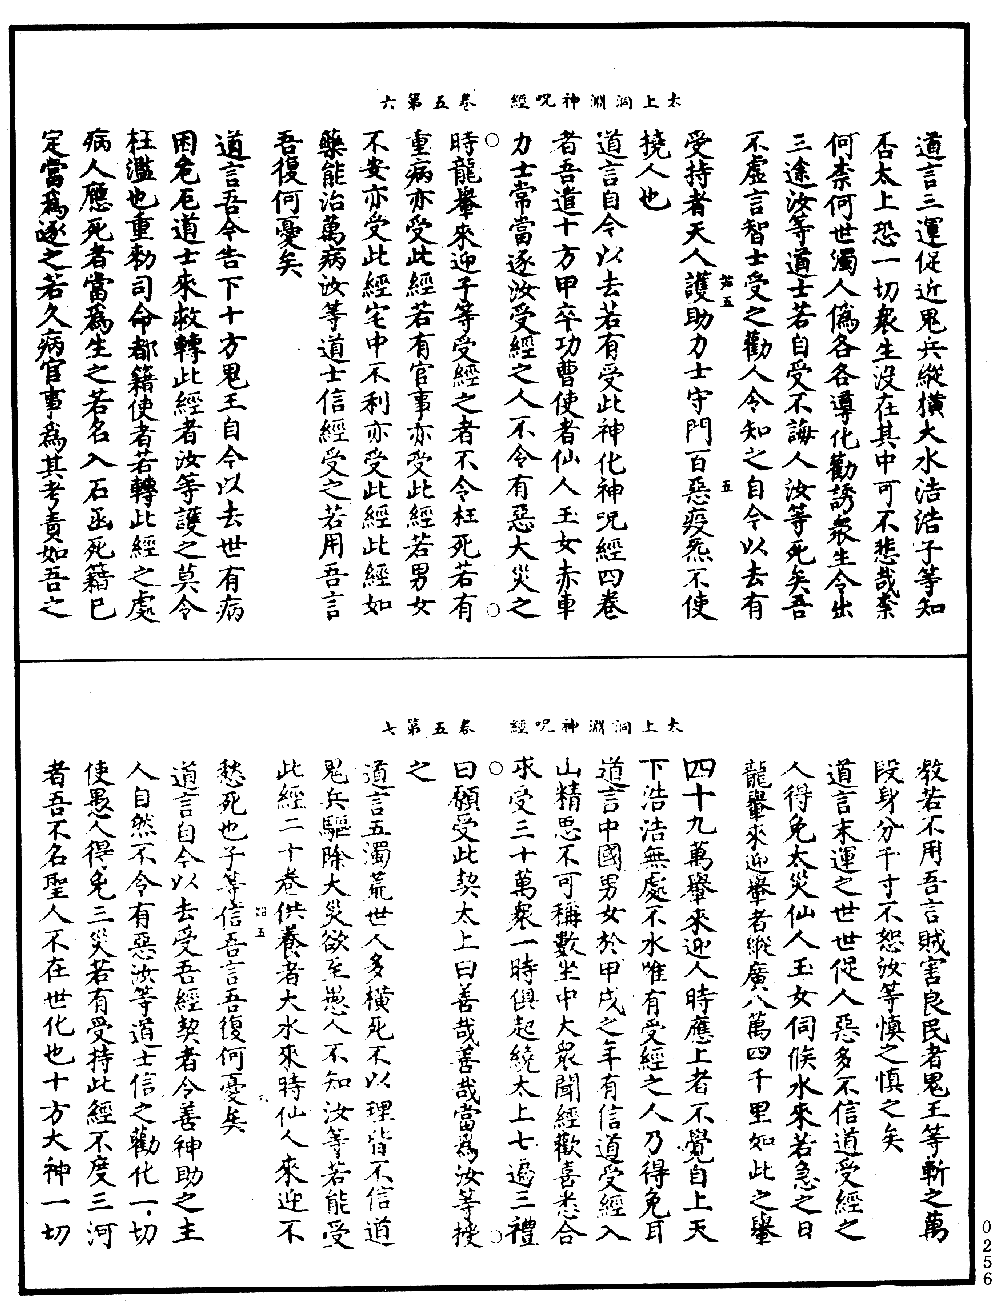 太上洞淵神呪經　卷五第六
道言三運促近鬼兵縱橫大水浩浩子等知
否太上恐一切衆生沒在其中可不悲哉柰
何柰何世濁人僞各各導化勸誘衆生令出
三途汝等道士若自受不誨人汝等死矣吾
不虛言智士受之勸人令知之自今以去有
受持者天人護助力士守門百惡疫炁不使
撓人也
道言自今以去若有受此神化神呪經四卷
者吾遣十方甲卒功曹使者仙人玉女赤車
力士常當逐汝受經之人不令有惡大災之
時龍轝來迎子等受經之者不令枉死若有
重病亦受此經若有官事亦受此經若男女
不安亦受此經宅中不利亦受此經此經如
藥能治萬病汝等道士信經受之若用吾言
吾復何憂矣
道言吾今告下十方鬼王自今以去世有病
困危厄道士來救轉此經者汝等護之莫令
枉濫也重勑司命都籍使者若轉此經之處
病人應死者當爲生之若名入石函死籍已
定當爲逐之若久病官事爲其考責如吾之
太上洞淵神呪經　卷五第七
教若不用吾言賊害良民者鬼王等斬之萬
段身分千寸不恕汝等慎之慎之矣
道言末運之世世促人惡多不信道受經之
人得免太災仙人玉女伺候水來若急之日
龍轝來迎轝者縱廣八萬四千里如此之轝
四十九萬轝來迎人時應上者不覺自上天
下浩浩無處不水唯有受經之人乃得免耳
道言中國男女於甲戌之年有信道受經入
山精思不可稱數坐中大衆聞經歡喜悉合
求受三十萬衆一時俱起繞太上七遍三禮
曰願受此契太上曰善哉善哉當爲汝等授
之
道言五濁荒世人多橫死不以理皆不信道
鬼兵驅除大災欲至愚人不知汝等若能受
此經二十卷供養者大水來時仙人來迎不
愁死也子等信吾言吾復何憂矣
道言自今以去受吾經契者令善神助之主
人自然不令有惡汝等道士信之勸化一切
使愚人得免三災若有受持此經不度三河
者吾不名聖人不在世化也十方大神一切
0256